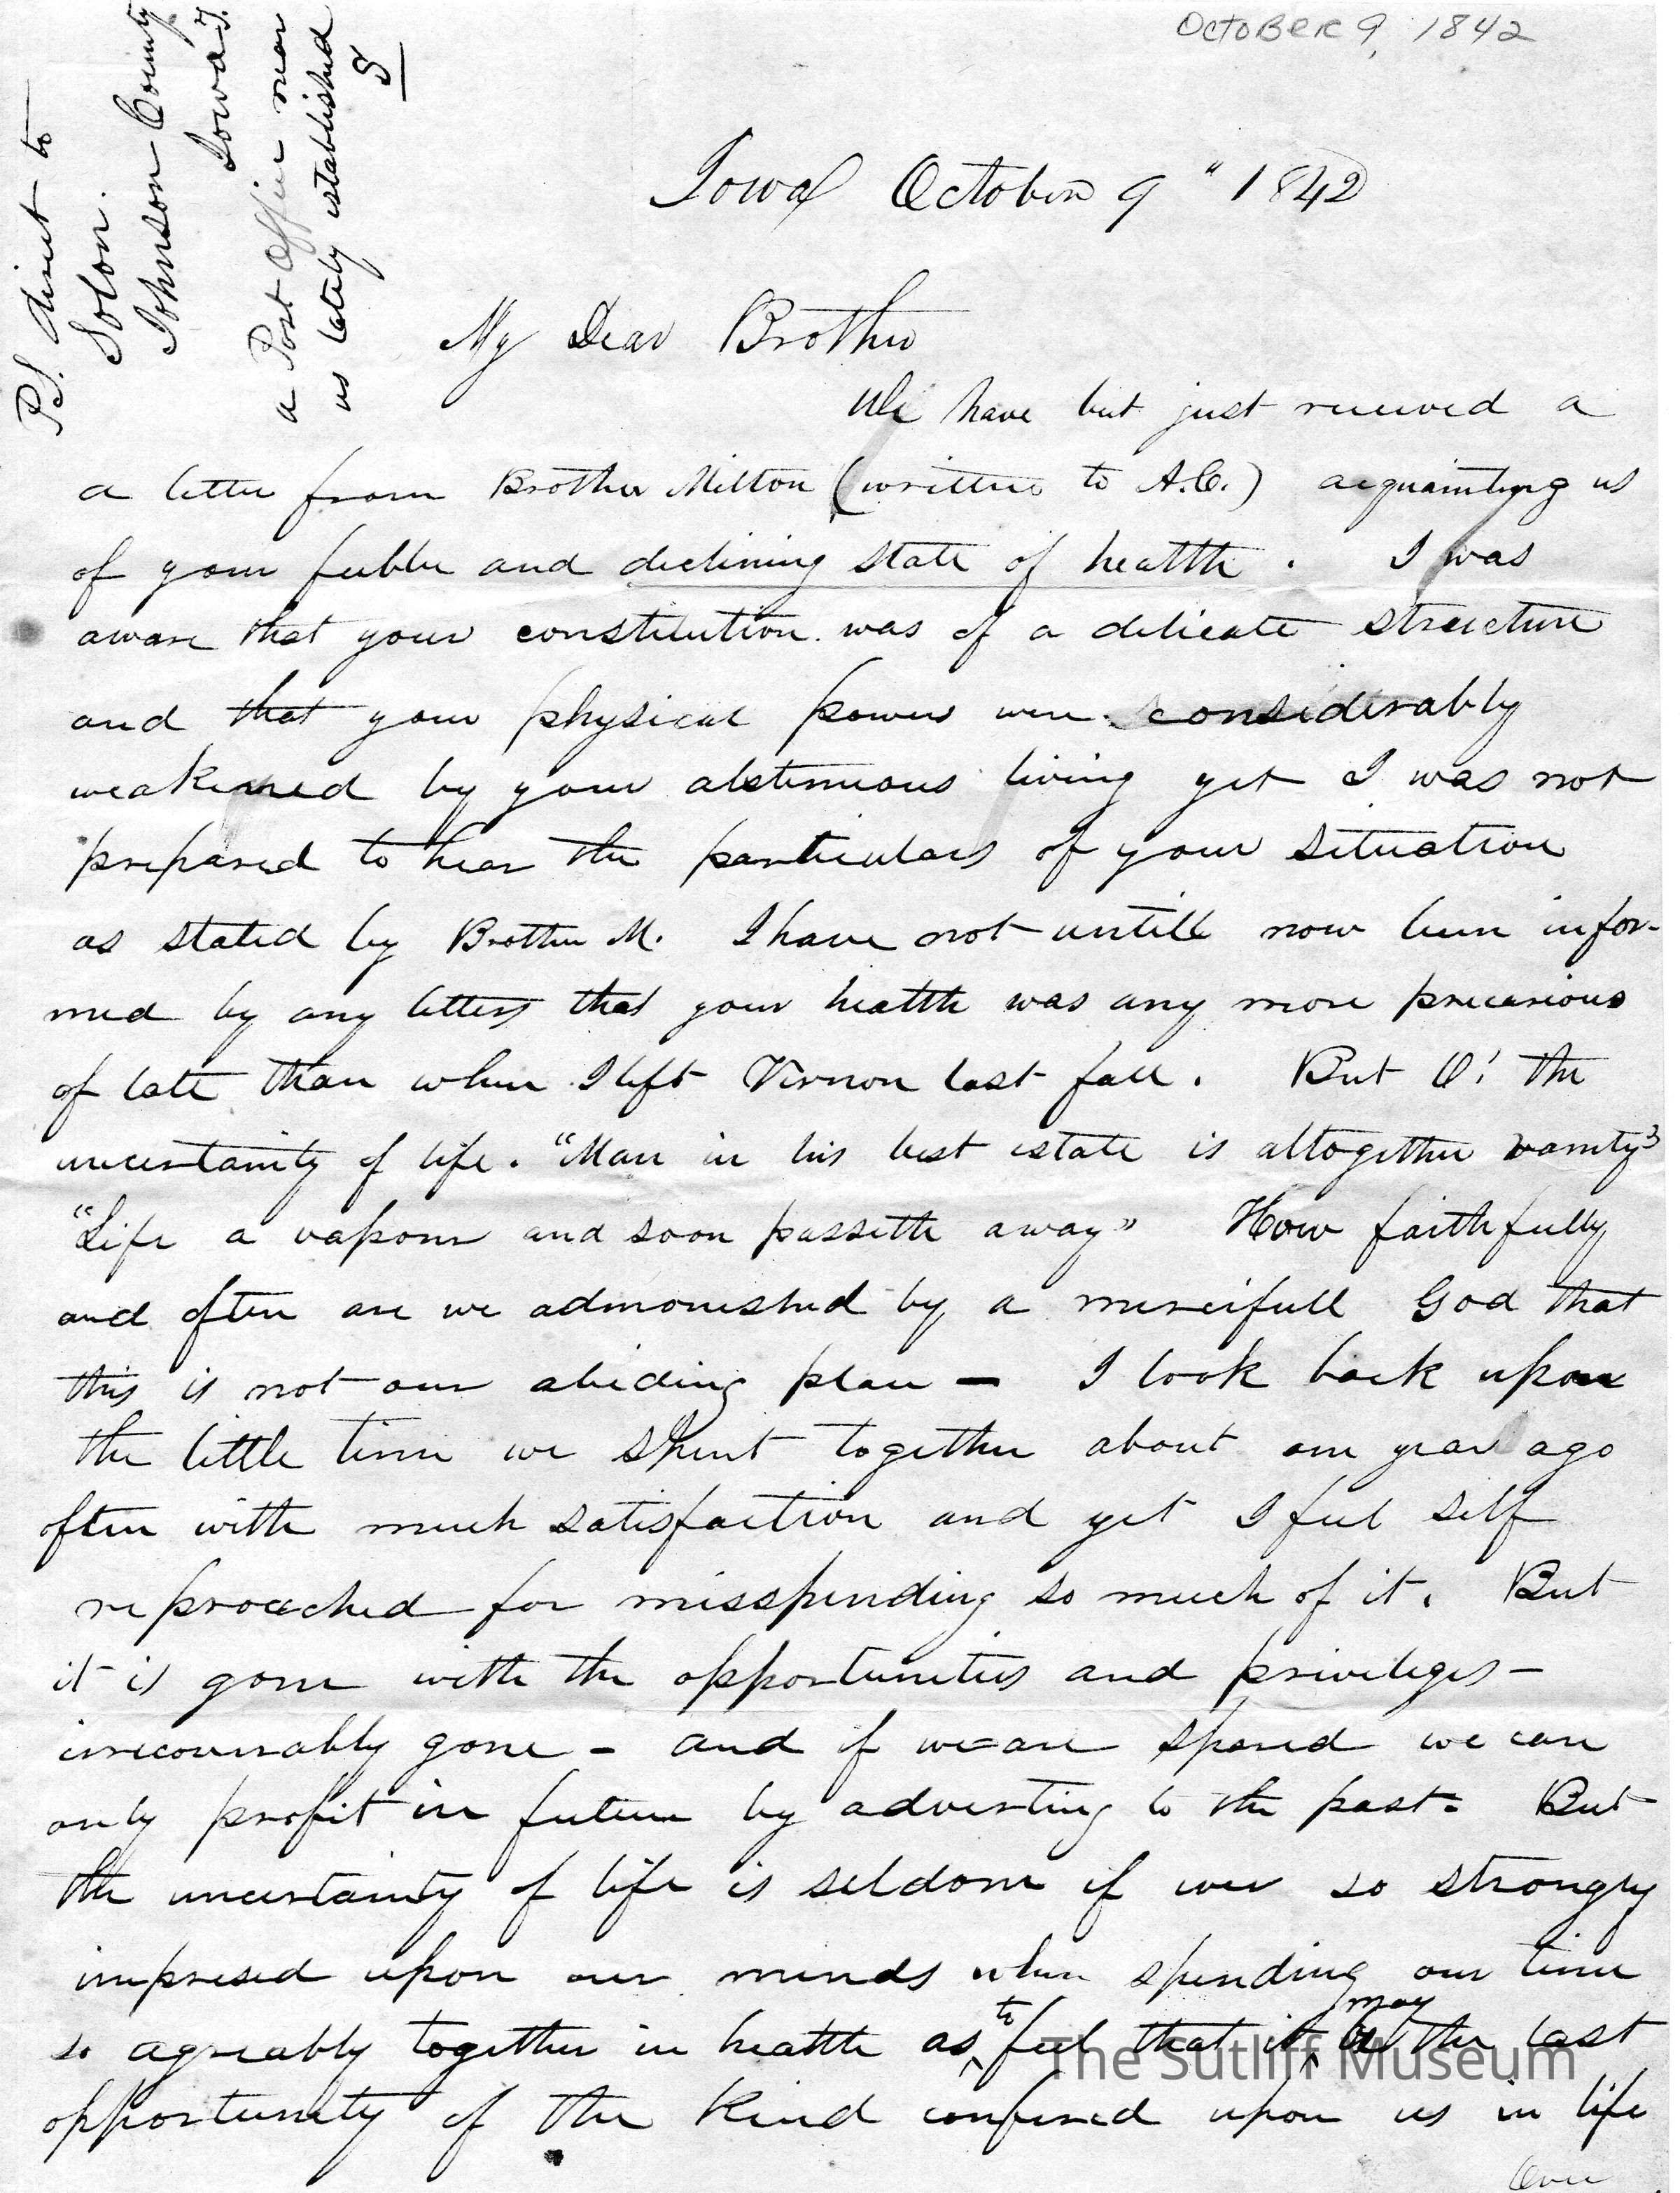 October 9, 1842
PS. direct to
Solon.
Johnson County
Iowa T.
a Post Office near
us lately established
S
Iowa October 9" 1842
My Dear Brother
We have but just received a
a letter from Brother Milton (written to A.C.) acquainting us
of your feeble and declining state of health. I was
aware that your constitution was of a delicate structure
and that your physical powers were considerably
weakened by your abstemious living yet I was not
prepared to hear the particulars of your situation
as stated by Brother M. I have not untill now been infor-
med by any letters that your health was any more precarious
of late than when I left Vernon last fall. But O! the
uncertainty of life. "Man in his best estate is altogether vanity"
"Life a vapour and soon passeth away" How faithfully
and often are we admonished by a mercifull God that
this is not our abiding place — I look back upon
the little time we spent together about one year ago
often with much satisfaction and yet I feel self
reproached for misspending so much of it. But
it is gone with the opportunities and privileges —
irrecoverably gone — and if we are spared we can
only profit in future by adverting to the past. But
the uncertainty of life is seldom if ever so strongly
impresed upon our minds when spending our time
so agreeably together in health as to feel that it may be the last
opportunity of the kind confered upon us in life
Over
The Sutliff Museum